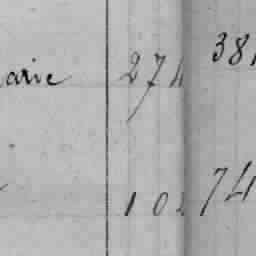 arie 274 381
102 74